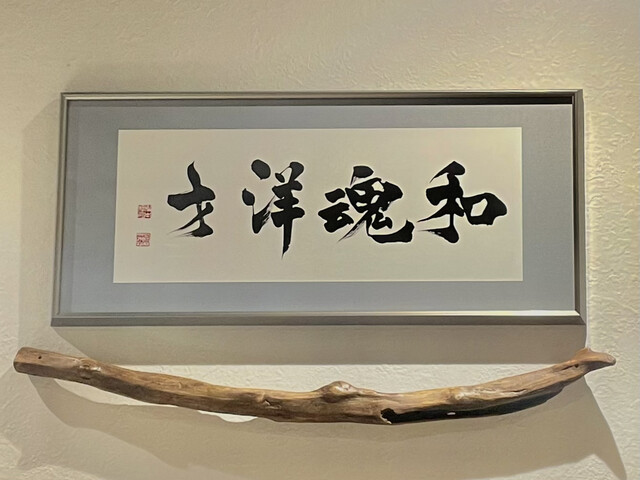 和魂洋才